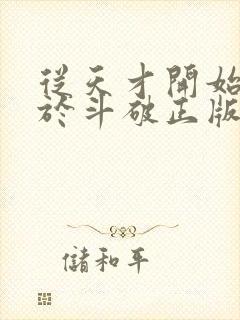 從天才開始
於斗破正版
儲和平